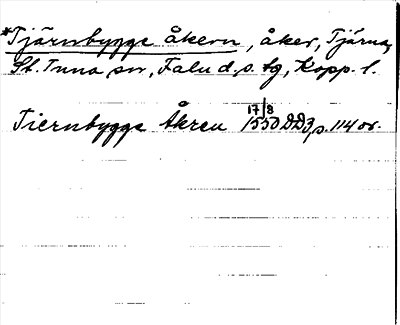 *Tjärnbygge åkern, åker, Tjärna,
St. Tuna sn, Falu d.s. tg, Kopp. l.
Tiernbygge Åkren 17/8 1550 DD3, s. 114 or.